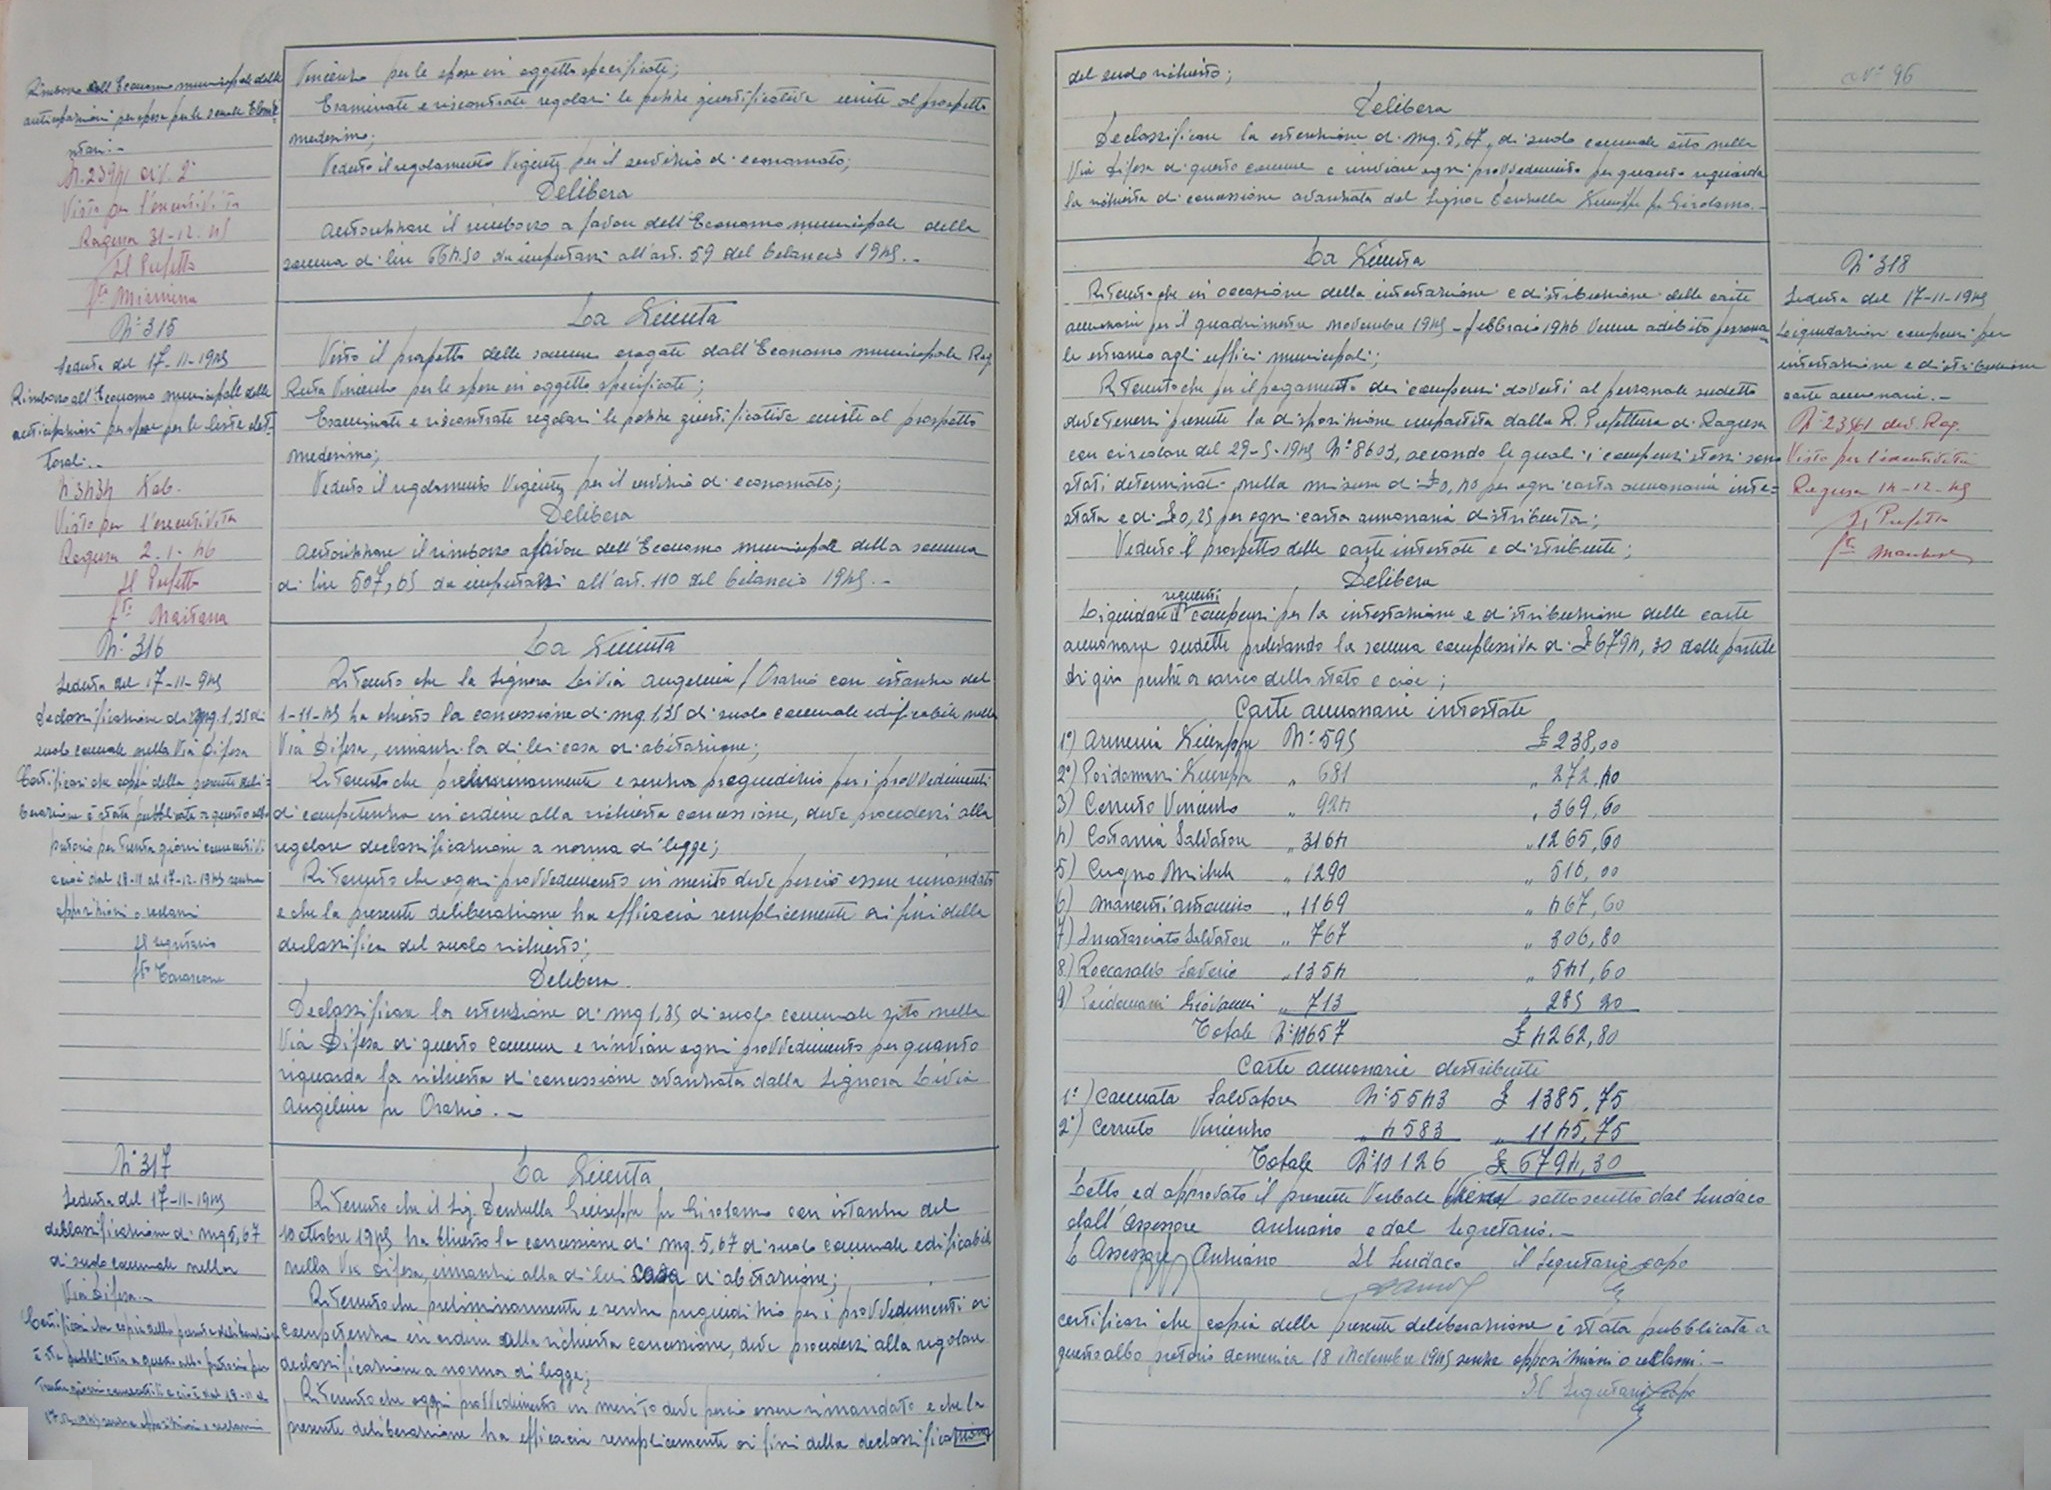 Rimborso all'Economo municipale delle
anticipazioni per spese per le scuole Elemen-
tari.-
N. 23941 Div. 2ª
Visto per l'esecutività
Ragusa 31-12-45
Il Prefetto
fto
N° 315
Seduta del 17-11-1945
Rimborso all'Economo municipale delle
anticipazioni per spese per le liste elet-
torali.-
N° 3434 Gab.
Visto per l'esecutività
Ragusa 2-1-46
Il Prefetto
fto
N° 316
Seduta del 17-11-945
Declassificazione di mq. 1,35 di
suolo comunale nella Via Difesa
Certificasi che copia della presente deli-
berazione è stata pubblicata a questo albo
pretorio per trenta giorni consecutivi
cioè dal 18-11 al 17-12-1945 senza
opposizioni o reclami
Il segretario
fto
N° 317
Seduta del 17-11-1945
declassificazione di mq 5,67
di suolo comunale nella
Via Difesa.-
Certificasi che copia della presente deliberazione
è sta pubblicata a questo albo pretorio per
trenta giorni consecutivi e cioè dal 18-11 al
17-12-1945 senza opposizioni e reclami
Vincenzo per le spese in oggetto specificate;
Esaminate e riscontrate regolari le pezze giustificative unite al prospetto
medesimo;
Veduto il regolamento Vigente per il servizio di economato;
Delibera
Autorizzare il rimborso a favore dell'Economo municipale della
somma di lire 664.50 da imputarsi all'art. 59 del bilancio 1945.-
La Giunta
Visto il prospetto delle somme erogate dall'Economo municipale Rag.
Ruta Vincenzo per le spese in oggetto specificate;
Esaminate e riscontrate regolari le pezze giustificative unite al prospetto
medesimo;
Veduto il regolamento Vigente per il servizio di economato;
Delibera
Autorizzare il rimborso a favore dell'Economo municipale della somma
di lire 507,65 da imputarsi all'art. 110 del bilancio 1945.-
La Giunta
Ritenuto che la Signora Livia Angelina fu Orazio con istanza del
1-11-45 ha chiesto la concessione di mq 1,35 di suolo comunale edificabile nella
Via Difesa, innanzi la di lei casa di abitazione;
Ritenuto che preliminarmente e senza pregiudizio per i provvedimenti
di competenza in ordine alla richiesta concessione, deve procedersi alla
regolare declassificazione a norma di legge;
Ritenuto che ogni provvedimento in merito deve perciò essere rimandato
e che la presente deliberazione ha efficacia semplicemente ai fini della
declassifica del suolo richiesto;
Delibera
Declassificare la estensione di mq 1,35 di suolo comunale sito nella
Via Difesa di questo Comune e rinviare ogni provvedimento per quanto
riguarda la richiesta di concessione avanzata dalla Signora Livia
Angelina fu Orazio.-
La Giunta
Ritenuto che il Sig. Denzella Giuseppe fu Girolamo con istanza del
10 ottobre 1945 ha chiesto la concessione di mq. 5,67 di suolo comunale edificabile
nella Via Difesa, innanzi alla di lui casa di abitazione;
Ritenuto che preliminarmente e senza pregiudizio per i provvedimenti di
competenza in ordine alla richiesta concessione, deve procedersi alla regolare
declassificazione a norma di legge;
Ritenuto che oggni provvedimento in merito deve perciò essere rimandato e che la
presente deliberazione ha efficacia semplicemente ai fini della declassificazione
del suolo richiesto;
Delibera
Declassificare la estensione di mq. 5,67, di suolo comunale sito nella
Via Difesa di questo comune e rinviare ogni provvedimento per quanto riguarda
la richiesta di concessione avanzata dal Signor Denzella Giuseppe fu Girolamo.-
La Giunta
Ritenuto che in occasione della intestazione e distribuzione delle carte
annonarie per il quadrimestre novembre 1945 - febbraio 1946 venne adibito persona-
le estraneo agli uffici municipali;
Ritenuto che per il pagamento dei compensi dovuti al personale sudetto
deve tenersi presente la disposizione impartita dalla R. Prefettura di Ragusa
con circolare del 29-5-1945 N° 8603, secondo le quali i compensi stessi sono
stati determinati nella misura di £ 0,40 per ogni carta annonaria inte-
stata e di £ 0,25 per ogni carta annonaria distribuita;
Veduto il prospetto delle carte intestate e distribuite;
Delibera
Liquidare i seguenti compensi per la intestazione e distribuzione delle carte
annonarie sudette prelevando la somma complessiva di £ 6794,30 dalle partite
di giro perchè a carico dello stato e cioè;
Carte annonarie intestate
1°) Armenia Giuseppe N° 595 £ 238,00
2°) Poidomani Giuseppe " 681 " 272.40
3) Cerruto Vincenzo " 924 " 369,60
4) Catania Salvatore " 3164 " 1265,60
5) Cugno Michele " 1290 " 516,00
6) Manenti Antonino " 1169 " 467,60
7) Incatasciato Salvatore " 767 " 306,80
8) Roccasalvo Saverio " 1354 " 541,60
9) Poidomani Giovanni " 713 " 285 20
Totale N° 10657 £ 4262,80
Carte annonarie distribuite
1°) Cannata Salvatore N° 5543 £ 1385,75
2°) Cerruto Vincenzo " 4583 " 1145,75
Totale N° 10126 £ 6794,30
Letto ed approvato il presente Verbale viene sottoscritto dal Sindaco
dall'Assessore Anziano e dal Segretario.-
L'Assessore Anziano Il Sindaco il Segretario capo
certificasi che copia della presente deliberazione è stata pubblicata a
questo albo pretorio domenica 18 Novembre 1945 senza opposizioni o reclami.-
Il Segretario Capo
N° 96
N° 318
Seduta del 17-11-1945
Liquidazioni compensi per
intestazione e distribuzione
carte annonarie.-
N° 23561 div. Rag.
Visto per l'esecutività
Ragusa 14-12-45
Il Prefetto
fto